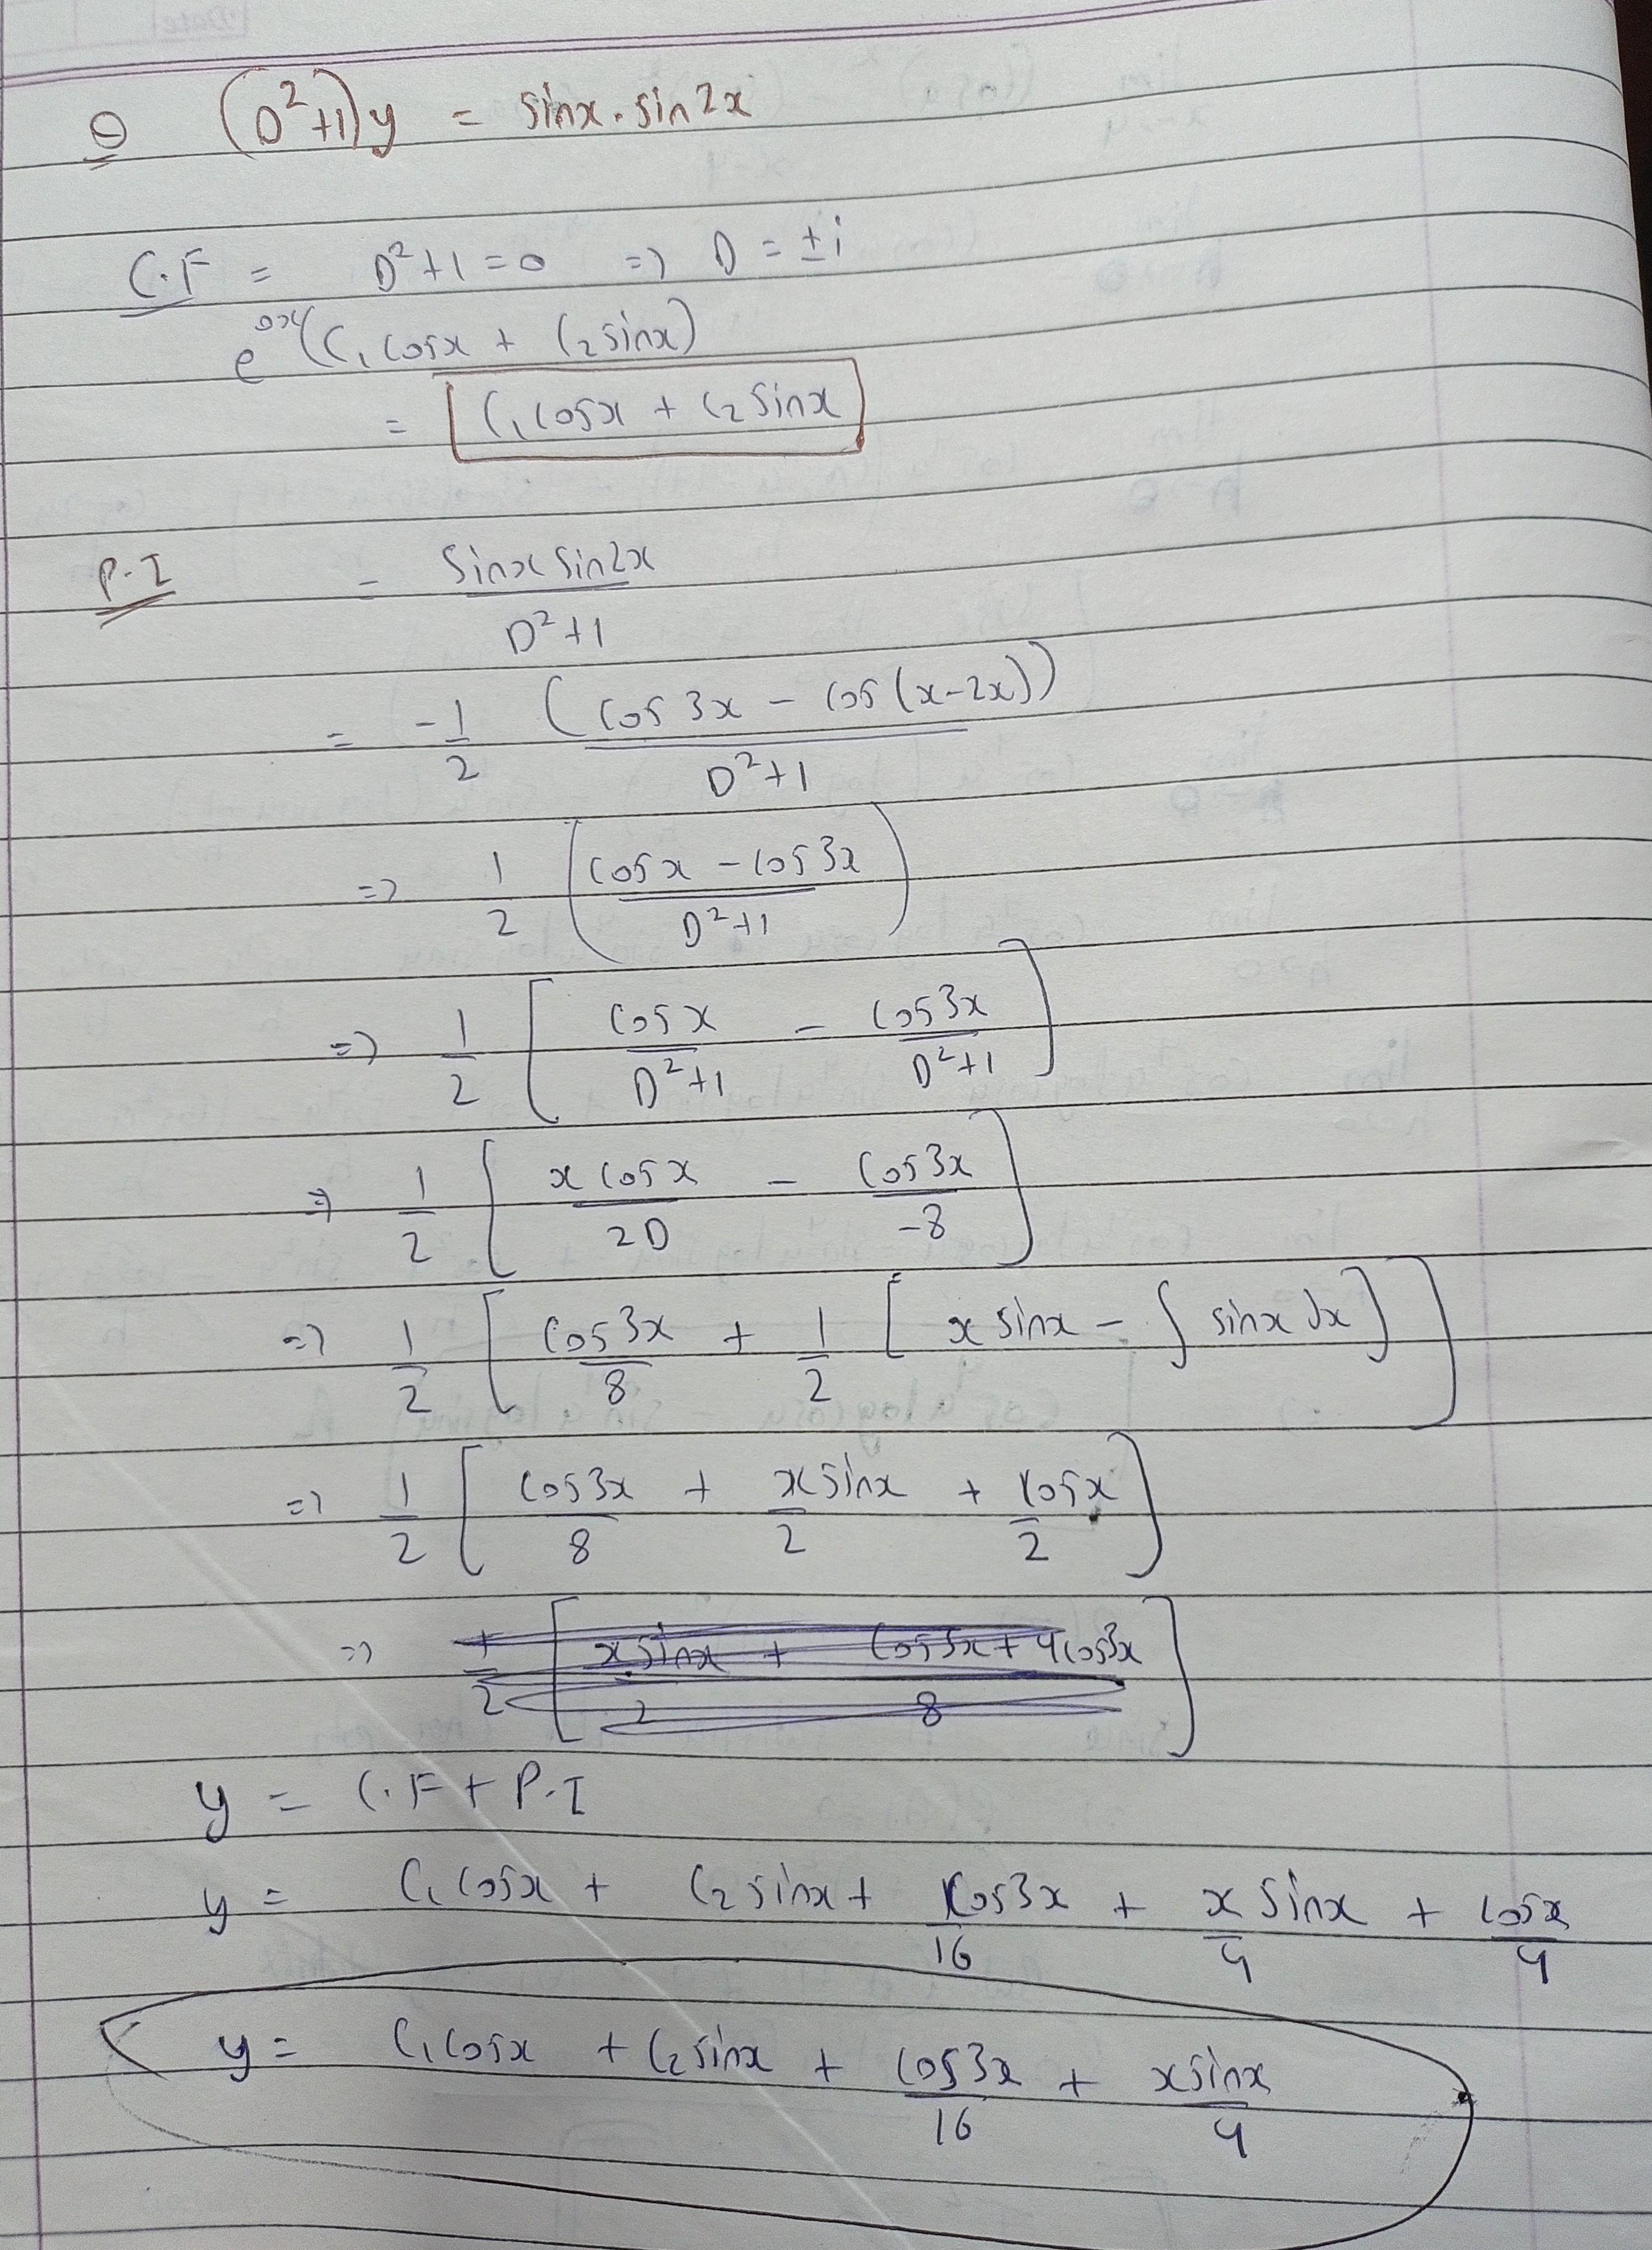 Q (D²+1)y = sinx·sin2x
C.F = D²+1=0 => D = ±i
e^{0x}(C₁cosx + C₂sinx)
= C₁cosx + C₂sinx
P.I = sinx sin2x / D²+1
= -1/2 (cos3x - cos(x-2x)) / D²+1
=> 1/2 (cosx - cos3x / D²+1)
=> 1/2 [cosx / D²+1 - cos3x / D²+1]
=> 1/2 [x cosx / 2D - cos3x / -8]
=> 1/2 [cos3x / 8 + 1/2 [x sinx - ∫ sinx dx]]
=> 1/2 [cos3x / 8 + x sinx / 2 + cosx / 2]
=> 
y = C.F + P.I
y = C₁cosx + C₂sinx + cos3x / 16 + x sinx / 4 + cosx / 4
y = C₁cosx + C₂sinx + cos3x / 16 + x sinx / 4